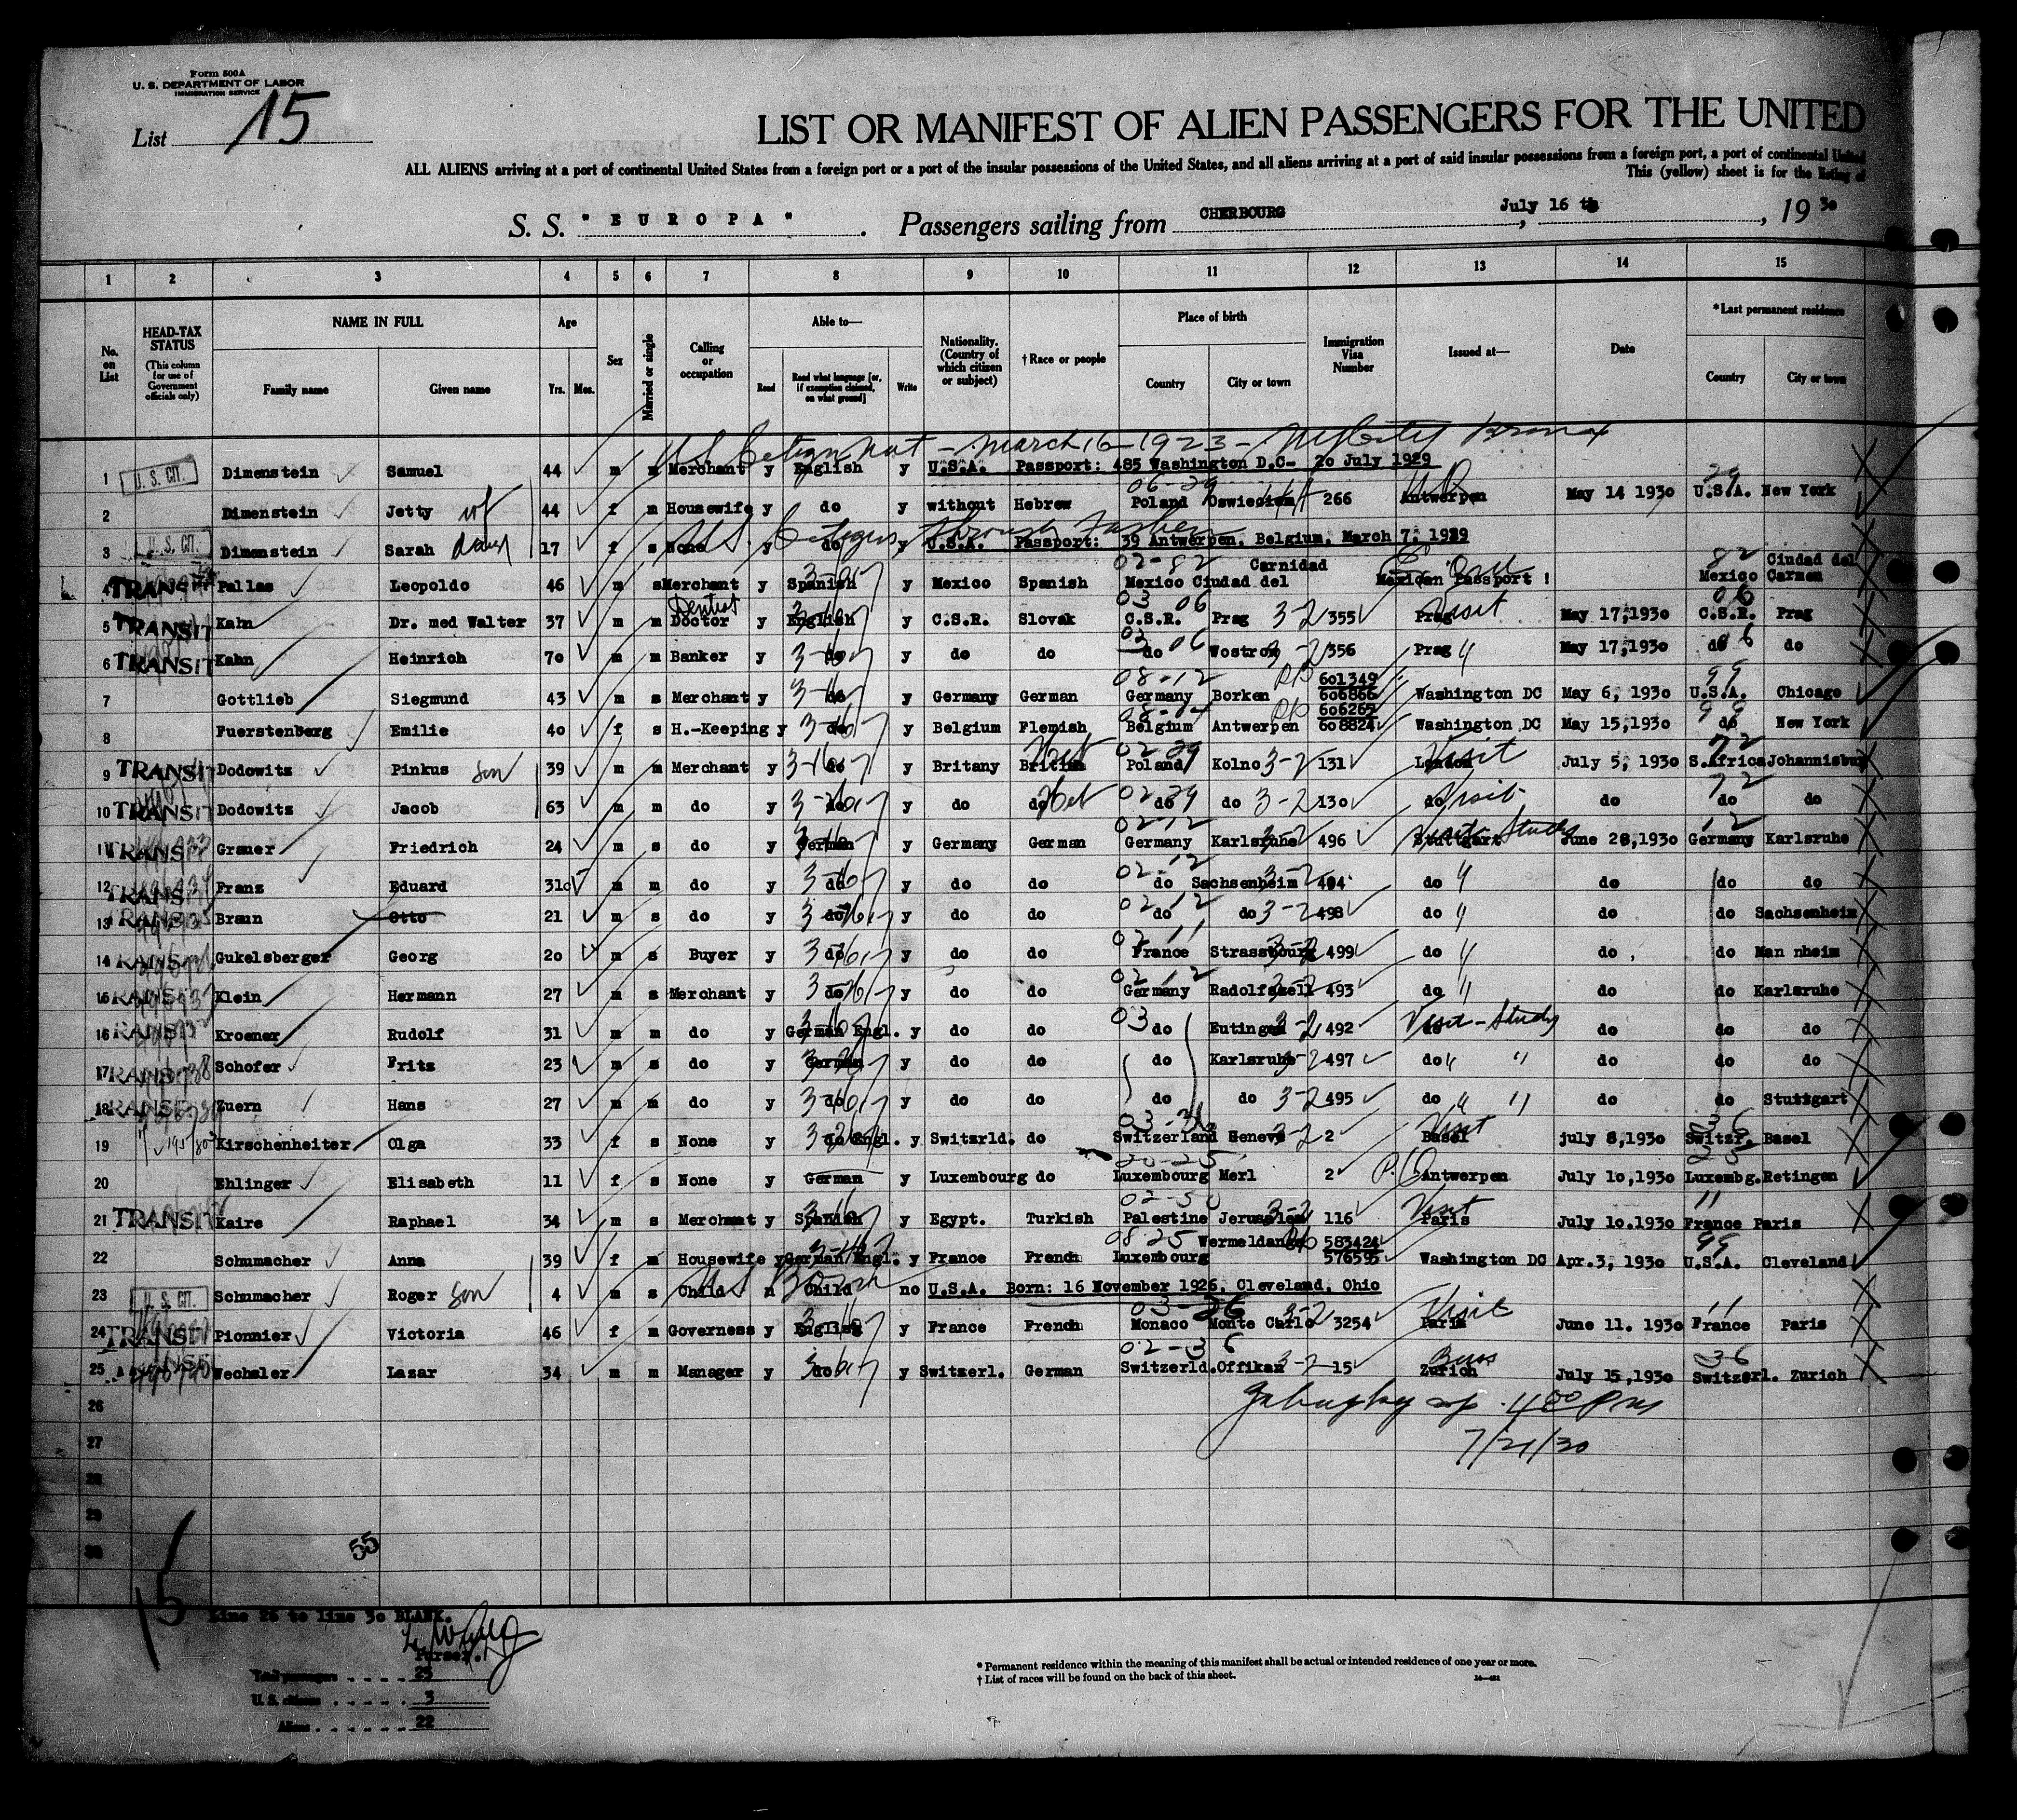 Form 500A
U. S. DEPARTMENT OF LABOR
IMMIGRATION SERVICE
List 15
LIST OR MANIFEST OF ALIEN PASSENGERS FOR THE UNITED
ALL ALIENS arriving at a port of continental United States from a foreign port or a port of the insular possessions of the United States, and all aliens arriving at a port of said insular possessions from a foreign port, a port of continental United
This (yellow) sheet is for the listing of
S. S. "EUROPA". Passengers sailing from CHERBOURG, July 16 th, 1930
1 2 3 4 5 6 7 8 9 10 11 12 13 14 15
No. on List HEAD-TAX STATUS (This column for use of Government officials only) NAME IN FULL Family name Given name Age Yrs. Mos. Sex Married or single Calling or occupation Able to— Read Read what language [or, if exemption claimed, on what ground] Write Nationality. (Country of which citizen or subject) †Race or people Place of birth Country City or town Immigration Visa Number Issued at— Date *Last permanent residence Country City or town
March 16-1923 - Bronx
1 U. S. CIT. Dimenstein Samuel 44 m m Merchant y English y U.S.A. Passport: 485 Washington D.C- 20 July 1929
2 Dimenstein Jetty wf 44 f m Housewife y do y without Hebrew Poland Oswiecim 266 Antwerpen May 14 1930 U.S.A. New York
US Citizen through Father
3 U. S. CIT. Dimenstein Sarah 17 f s None y do y U.S.A. Passport: 39 Antwerpen, Belgium, March 7, 1929
4 TRANSIT Pallas Leopoldo 46 m s Merchant y Spanish y Mexico Spanish Mexico Ciudad del Carnidad Mexican Passport ! Mexico Ciudad del Carmen
5 TRANSIT Kahn Dr. med Walter 37 m m Dentist Doctor y English y C.S.R. Slovak C.S.R. Prag 3-2 355 Prag Visit May 17,1930 C.S.R. Prag
6 TRANSIT Kahn Heinrich 70 m m Banker y do y do do do Wostrom 356 Prag May 17,1930 do do
7 Gottlieb Siegmund 43 m s Merchant y do y Germany German Germany Borken 601349 606866 Washington DC May 6, 1930 U.S.A. Chicago
8 Fuerstenberg Emilie 40 f s H.-Keeping y do y Belgium Flemish Belgium Antwerpen 606265 608824 Washington DC May 15,1930 do New York
9 TRANSIT Dodowitz Pinkus son 39 m m Merchant y do y Britany British Poland Kolno 3-2 131 London Visit July 5, 1930 S.Africa Johannisburg
10 TRANSIT Dodowitz Jacob 63 m m do y do y do do do do 3-2 130 do Visit do do do
11 TRANSIT Graner Friedrich 24 m s do y German y Germany German Germany Karlsruhe 496 Stuttgart June 28,1930 Germany Karlsruhe
12 TRANSIT Franz Eduard 31 m m do y do y do do do Sachsenheim 494 do do do do
13 TRANSIT Braun Otto 21 m s do y do y do do do do 3-2 498 do do do Sachsenheim
14 TRANSIT Gukelsberger Georg 20 m s Buyer y do y do do France Strassbourg 499 do do do Man nheim
15 TRANSIT Klein Hermann 27 m s Merchant y do y do do Germany Radolfszell 493 do do do Karlsruhe
16 TRANSIT Kroener Rudolf 31 m m do y German Engl. y do do do Eutingen 3-2 492 do Visit-Study do do do
17 TRANSIT Schofer Fritz 23 m s do y German y do do do Karlsruhe 497 do do do do
18 TRANSIT Zuern Hans 27 m m do y do y do do do do 3-2 495 do do do Stuttgart
19 Kirschenheiter Olga 33 f s None y do Engl. y Switzrld. do Switzerland Geneve 2 Basel Visit july 8,1930 Switzr. Basel
20 Ehlinger Elisabeth 11 f s None y German y Luxembourg do Luxembourg Merl 2 Antwerpen July 10,1930 Luxembg. Retingen
21 TRANSIT Kaire Raphael 34 m s Merchant y Spanish y Egypt. Turkish Palestine Jerusalem 116 Paris Visit July 10.1930 France Paris
22 Schumacher Anna 39 f m Housewife y German Engl. y France French Luxembourg Wermeldange 583424 576595 Washington DC Apr.3, 1930 U.S.A. Cleveland
US Born
23 U. S. CIT. Schumacher Roger son 4 m s Child n Child no U.S.A. Born: 16 November 1926, Cleveland, Ohio
24 TRANSIT Pionnier Victoria 46 f m Governess y English y France French Monaco Monte Carlo 3-2 3254 Paris Visit June 11. 1930 France Paris
25 Wechsler Lazar 34 m m Manager y do y Switzerl. German Switzerld. Offikan 3-2 15 Zurich Bus July 15,1930 Switzerl. Zurich
26
4 00 PM
27
7/21/30
28
29
30
55
15
Line 26 to line 30 BLANK.
Purser.
Total passengers 25
U. S. citizens 3
Aliens 22
* Permanent residence within the meaning of this manifest shall be actual or intended residence of one year or more.
† List of races will be found on the back of this sheet.